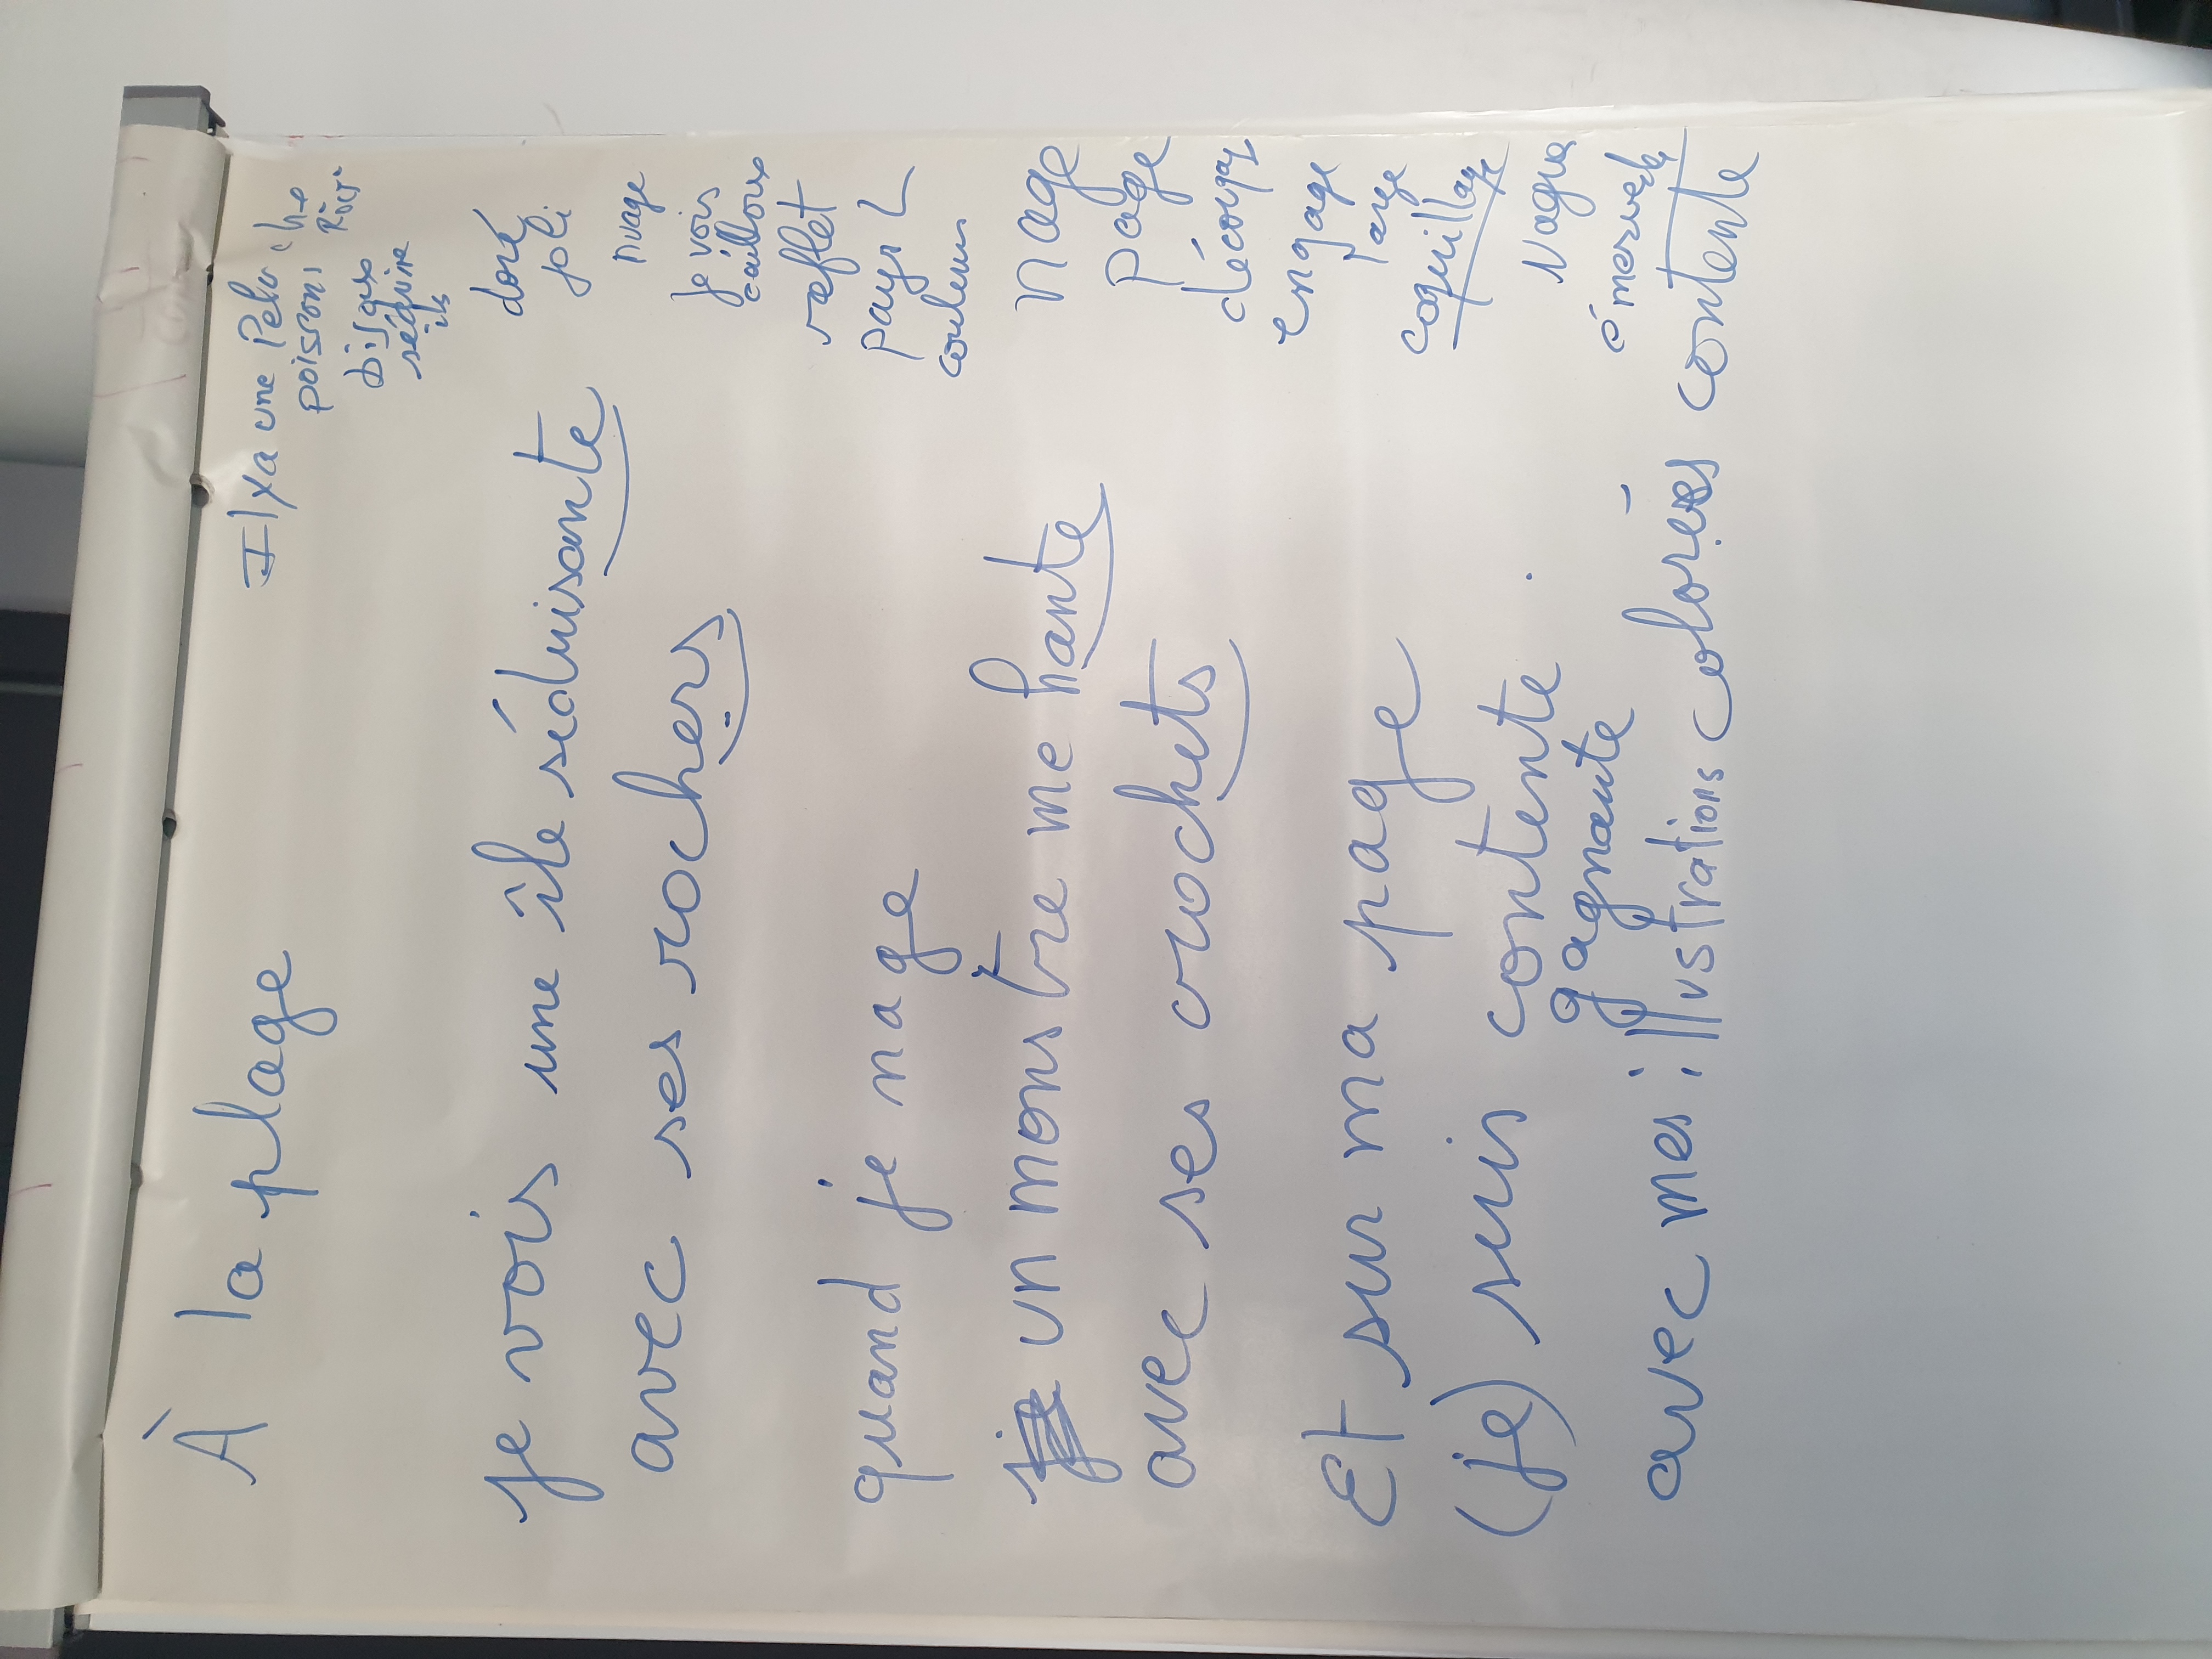 À la plage
je vois une île séduisante
avec ses rochers
quand je nage
un monstre me hante
avec ses crochets
Et sur ma page
(je) suis contente.
gagnante
avec mes illustrations colorées
Il y a une
poissons
doré
joli
nuage
je vois
cailloux
reflet
pays
couleurs
nage
page
engage
coquillage
contente